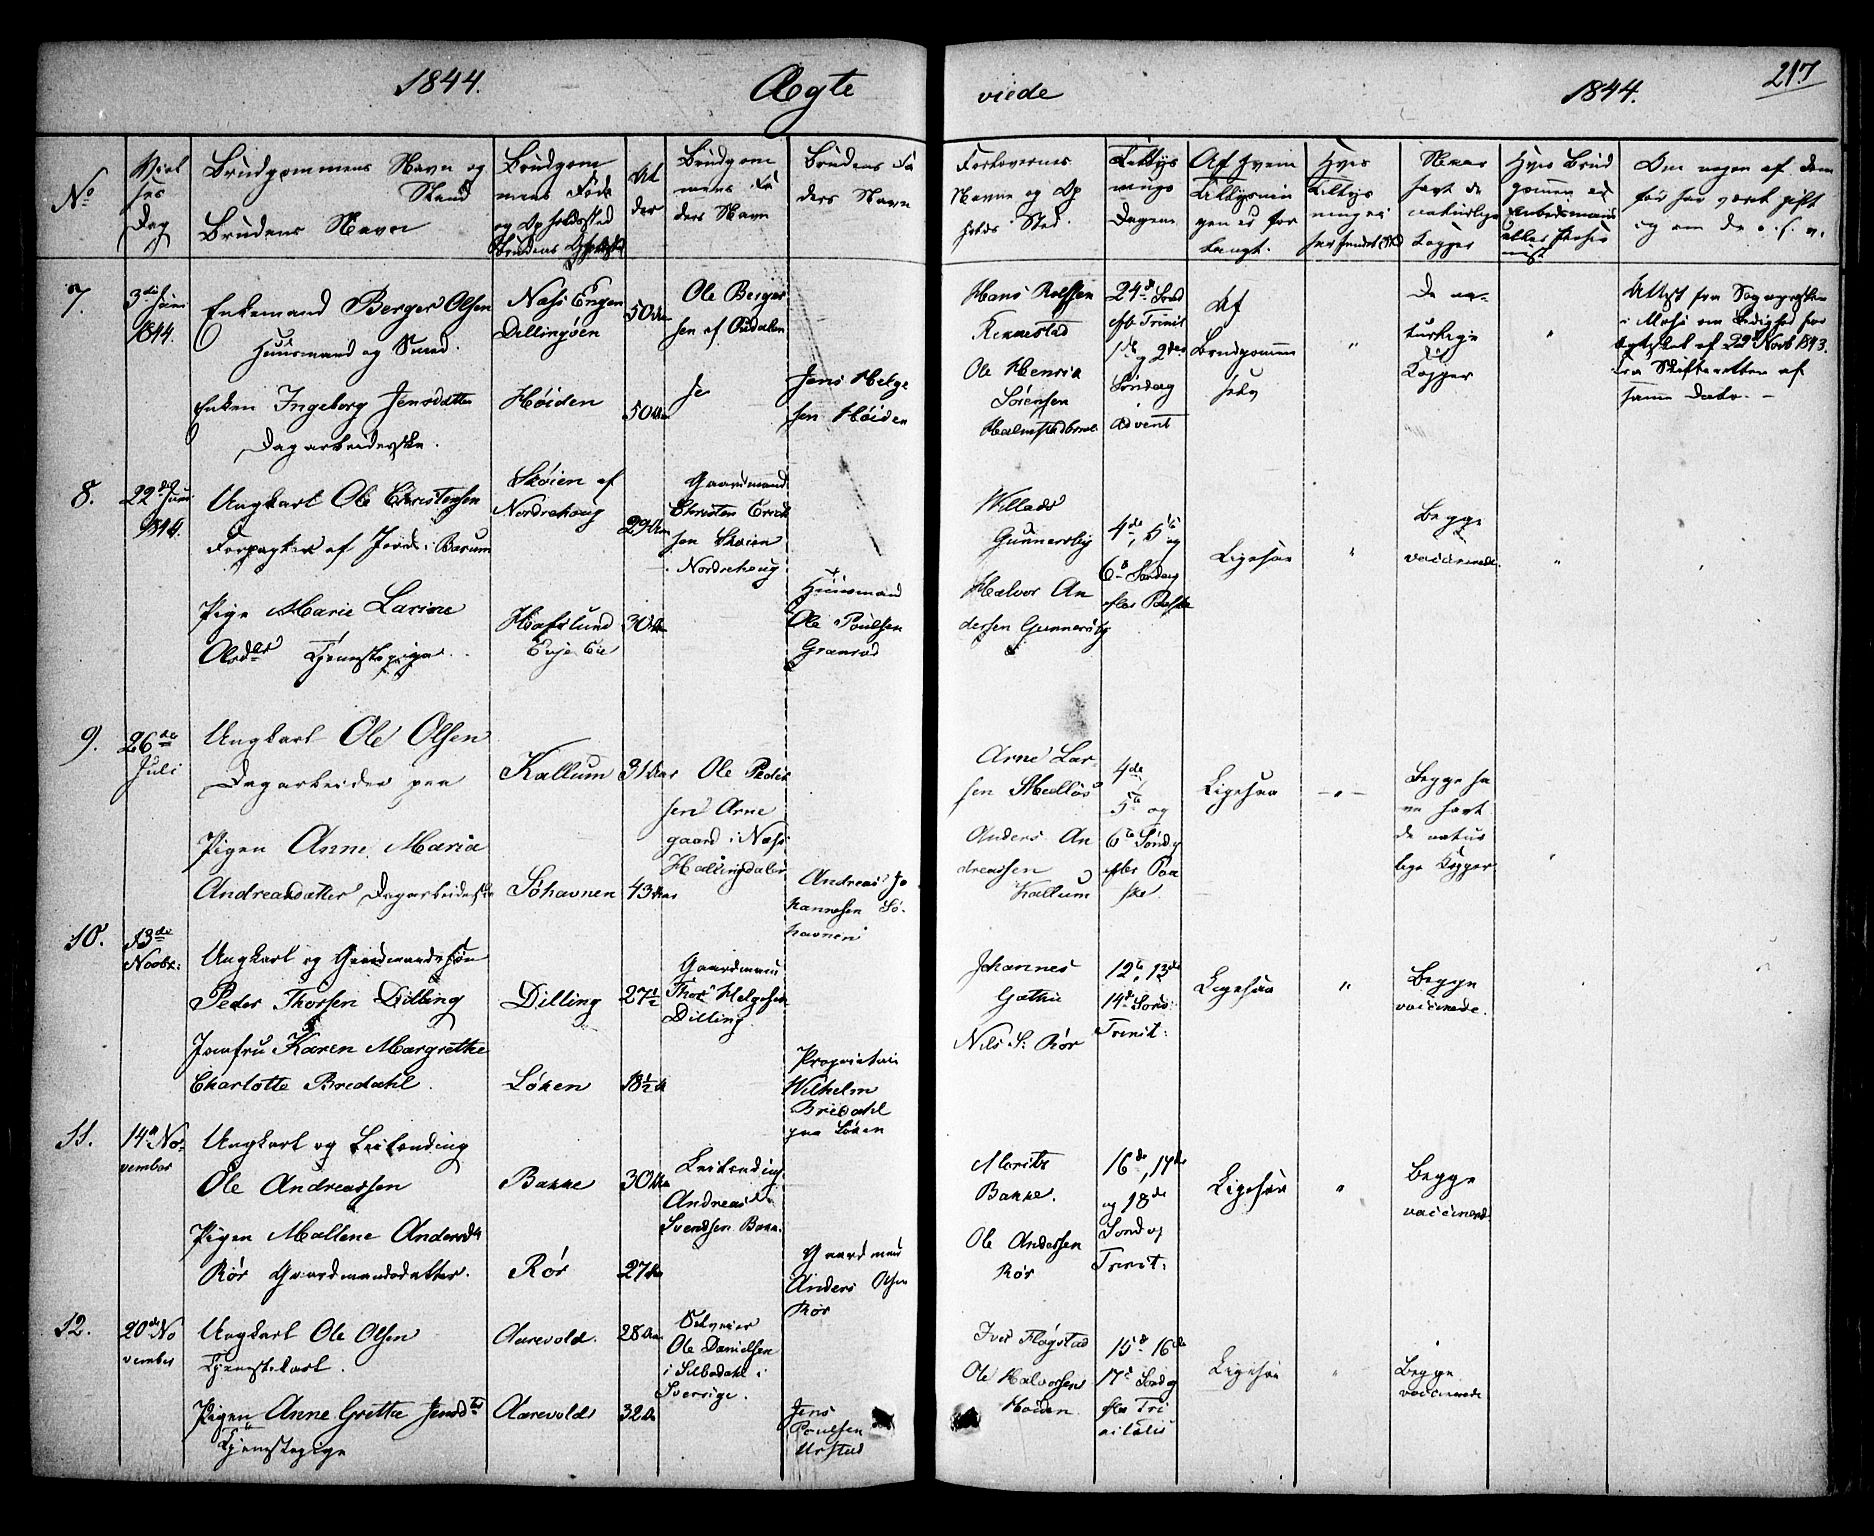 1844. Ægte
viede 1844. 217
No
Dag
Brudgommens Navn og
Stand
Brudens Navn
Brudgom
mens Føde
og Opholdssted
Al
der
Brudgom
mens Fa
ders Navn
Brudens Fa
ders Navn
Forlovernes
Navne og Op
holds Sted.
Dagene
Af hvem
Hvis
naturlige
Kopper
Hvis Brud
gommen er
Om nogen af dem
før har været gift
og om de o. s. v.
7.
3die Juni
1844.
Enkemand Berger Olsen
Huusmand og Smed.
Enken Ingeborg Jensdatter
Dagarbeiderske.
Næs Engen
Dillingøen
Høiden
50
50
Ole Berger
sen af
Jens Helge
sen Høiden
Hans Rolfsen
Kennestad
Ole Henrik
Sørensen
24de Sønd
eft. Trinit
1ste og 2den
Søndag
i
Advent
Af
Brudgommen
selv
"
De na-
turlige
Kopper
"
Attest fra Sogepræsten
i Moss om Ledighed for
af 29 Novb 1843.
fra Skifteretten af
samme Dato. -
8.
22de Juni
1844.
Ungkarl Ole Christensen
Forpagter af Jord i Barum
Pige Marie Larine
Olsdtr Tjenestepige.
Skøien af
Nordrehoug
Hafslund
Evje Eie
29 Aar
30 Aar
Gaardmand
Christen Erick
sen Skøien
Nordrehoug
Huusmand
Ole Poulsen
Granrød
Willads
Gunnersby
Halvor An
dersen Gunnersby
4de, 5te og
6te Søndag
efter Paaske
Ligesaa
"
Begge
vaccinerede.
"
9.
26de
Juli
Ungkarl Ole Olsen
Dagarbeider paa
Pigen Anne Maria
Andreasdatter Dagarbeiderske
Kallum
Søhavnen
31 Aar
43 Aar
Ole Peder
sen Arne
gaard i Næs
Hallingdalen
Andreas Jo
hannesen Sø-
havnen
Arne Lar-
sen Melløs
Anders An
dreassen
Kallum
4de
5te og
6te Sønd
efter Paa
ske.
Ligesaa
- " -
Begge ha
ve havt
de natur
lige Kopper
"
10.
13de
Novbr.
Ungkarl og Gaardmandssøn
Peder Thorsen Dilling
Jomfru Karen Margrethe
Charlotte Bredahl.
Dilling
Løken
27½
18½
Gaardmand
Thor Helgesen
Dilling.
Proprietair
Wilhelm
Bredahl
paa Løken
Johannes
Gathe
Nils S. Rør
12te, 13de
14de Sønd.
Trinit.
Ligesaa
"
Begge
vaccinerede.
11.
14de No-
vember
Ungkarl og Leilending
Ole Andreassen
Pigen Mallene Andersdtr
Rør Gaardmandsdatter.
Bakke
Rør
30 Aar
27 Aar
Leilending
Andreas
Svendsen Bakke.
Gaardmand
Anders Olsen
Rør
Moritz
Bakke.
Ole Andersen
Rør
16de, 17de
og 18de
Søndag
Trinit.
Ligesaa
"
Begge
vaccinerede
12.
20de No
vember
Ungkarl Ole Olsen
Tjenestekarl.
Pigen Anne Grethe Jensdtr
Tjenestepige
Aarevold.
Aarevold
28 Aar
32 Aar
Ole Danielsen
i Silbodahl i
Sverrige.
Jens
Poulsen
Urstad
Iver Fløgstad
Ole Halvorsen
Høiden.
15de 16de
17de Sønd
efter Tri
nitatis
Ligesaa
"
Begge
vaccinerede